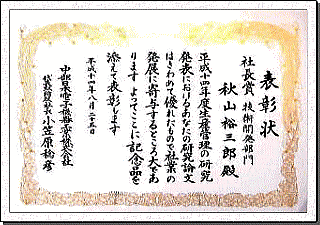 表彰状
社長賞 技術開発部門
秋山裕三郎殿
平成十四年度生産管理の研究
発表におけるあなたの研究論文
はきわめて優れたもので社業の
発展に寄与するところ大であ
ります よってここに記念品を
添えて表彰します
平成十四年八月二十五日
中部日本電子機器株式会社
代表取締役社長 小笠原 彦